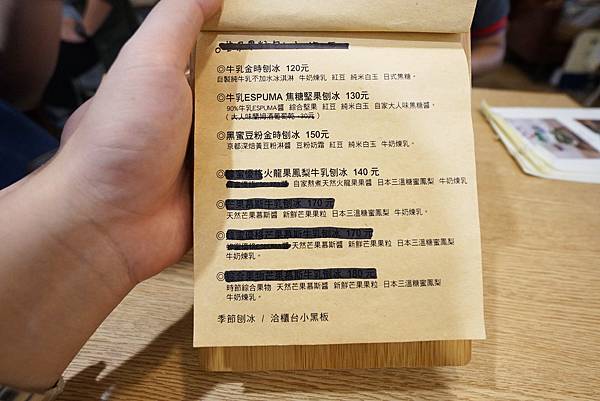 ◎牛乳金時刨冰 120元
自製純牛乳不加水冰淇淋 牛奶煉乳 紅豆 純米白玉 日式焦糖。
◎牛乳ESPUMA 焦糖堅果刨冰 130元
90%牛乳ESPUMA醬 綜合堅果 紅豆 純米白玉 自家大人味焦糖醬。
（大人味蘭姆酒葡萄乾 +30元）
◎黑蜜豆粉金時刨冰 150元
京都深焙黃豆粉淋醬 豆粉奶霜 紅豆 純米白玉 牛奶煉乳。
◎蜂蜜優格火龍果鳳梨牛乳刨冰 140 元
自家熬煮天然火龍果果醬 日本三溫糖蜜鳳梨 牛奶煉乳
◎芒果慕斯牛乳刨冰 170 元
天然芒果慕斯醬 新鮮芒果果粒 日本三溫糖蜜鳳梨 牛奶煉乳。
◎芒果慕斯牛乳刨冰 170 元
天然芒果慕斯醬 新鮮芒果果粒 日本三溫糖蜜鳳梨
牛奶煉乳。
◎芒果慕斯牛乳刨冰 180 元
時節綜合果物 天然芒果慕斯醬 新鮮芒果果粒 日本三溫糖蜜鳳梨
牛奶煉乳。
季節刨冰 / 洽櫃台小黑板